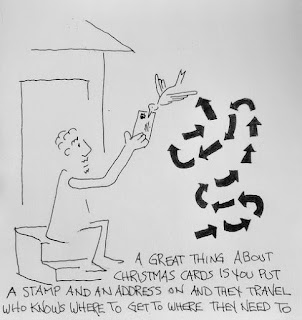 A GREAT THING ABOUT
CHRISTMAS CARDS IS YOU PUT
A STAMP AND AN ADDRESS ON AND THEY TRAVEL
WHO KNOWS WHERE TO GET TO WHERE THEY NEED TO